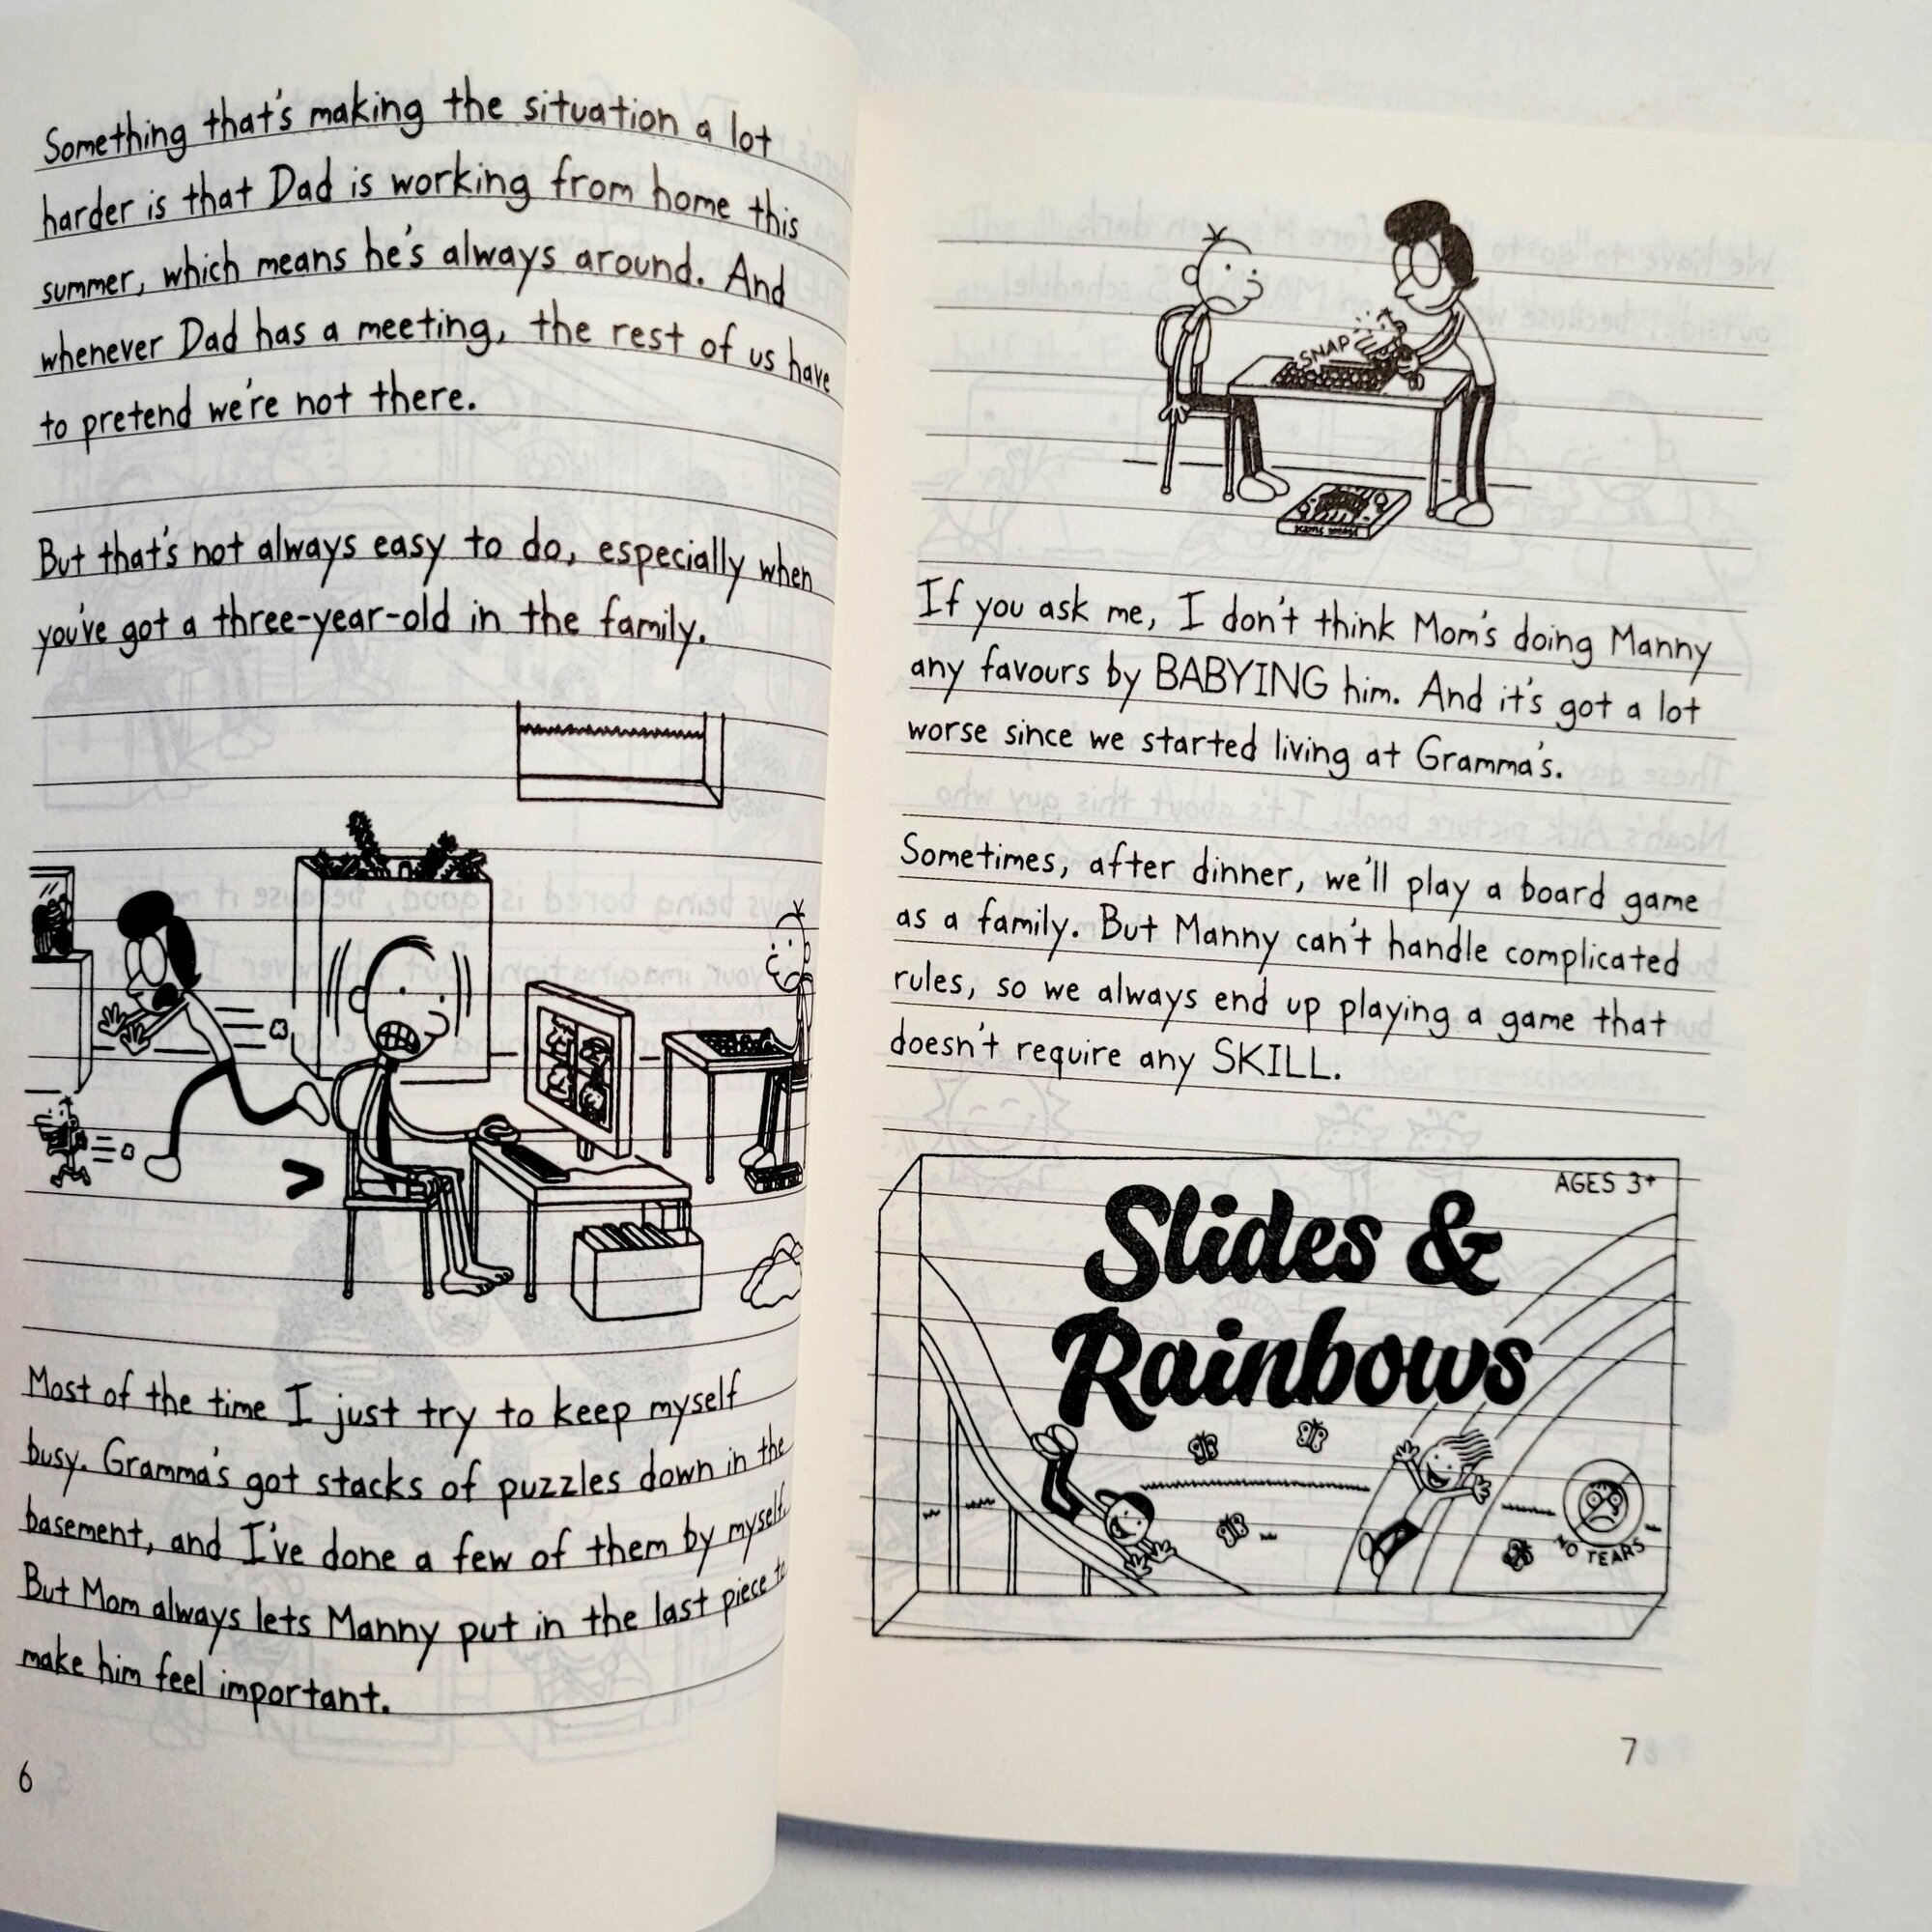 Something that's making the situation a lot
harder is that Dad is working from home this
summer, which means he's always around. And
whenever Dad has a meeting, the rest of us have
to pretend we're not there.
But that's not always easy to do, especially when
you've got a three-year-old in the family.
Most of the time I just try to keep myself
busy. Gramma's got stacks of puzzles down in the
basement, and I've done a few of them by myself.
But Mom always lets Manny put in the last piece to
make him feel important.
6
SNAP
If you ask me, I don't think Mom's doing Manny
any favours by BABYING him. And it's got a lot
worse since we started living at Gramma's.
Sometimes, after dinner, we'll play a board game
as a family. But Manny can't handle complicated
rules, so we always end up playing a game that
doesn't require any SKILL.
AGES 3+
Slides &
Rainbows
NO TEARS
7